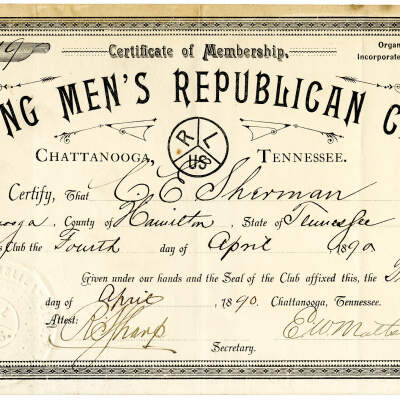 19
Certificate of Membership.
Organ
Incorporate
NG MEN'S REPUBLICAN C
R L
US
CHATTANOOGA, TENNESSEE.
Certify, That C. E. Sherman
ooga, County of Hamilton, State of Tennessee
s Club the Fourth day of April 1890
Given under our hands and the Seal of the Club affixed this, the
day of April 1890. Chattanooga, Tennessee.
Attest:
R. Sharp E. W. Matte
Secretary.